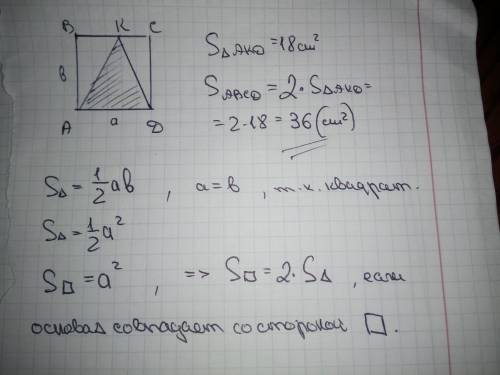 B K C
в
A a D
S△AKD = 18 см²
SABCD = 2 · S△AKD =
= 2 · 18 = 36 (см²)
S△ = 1/2 aв , a = в , т.к. квадрат.
S△ = 1/2 a²
S□ = a² , => S□ = 2 · S△ , если
основая совпадает со стороной □.